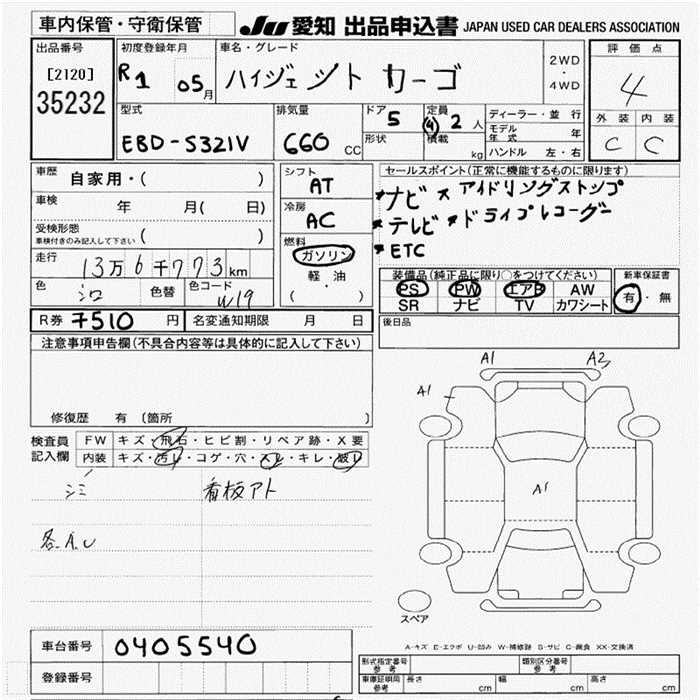 車内保管・守衛保管
JU 愛知 出品申込書 JAPAN USED CAR DEALERS ASSOCIATION
出品番号
[2120]
35232
初度登録年月
R1 05月
車名・グレード
ハイジェットカーゴ
2WD
・
4WD
評価点
4
外装 内装
C C
型式
EBD-S321V
排気量
660 CC
ドア 5
形状
定員 (4) 2 人
積載 kg
ディーラー・並行
モデル年式 年
ハンドル 左・右
車歴 自家用・( )
車検 年 月( 日)
受検形態
車検付きのみ記入して下さい ( )
走行 13万6千773km
色 シロ 色替 色コード W19
シフト
AT
冷房
AC
燃料
ガソリン
軽・油
( )
セールスポイント(正常に機能するものに限ります)
*ナビ *アイドリングストップ
*テレビ *ドライブレコーダー
*ETC
装備品(純正品に限り○をつけてください)
PS PW エアB AW
SR ナビ TV カワシート
新車保証書
有・無
R券 7510円 名変通知期限 月 日
後日品
注意事項申告欄(不具合内容等は具体的に記入して下さい)
修復歴 有 〔箇所 〕
検査員記入欄
FW キズ・飛石・ヒビ割・リペア跡・X要
内装 キズ・汚レ・コゲ・穴・スレ・キレ・破レ
シミ 看板アト
A1 A2
A1
A1
スペア
A-キズ E-エクボ U-凹み W-補修跡 S-サビ C-腐食 XX-交換済
車台番号 0405540
登録番号
形式指定番号 参考
類別区分番号 参考
車庫証明用 参考 長さ cm 幅 cm 高さ cm